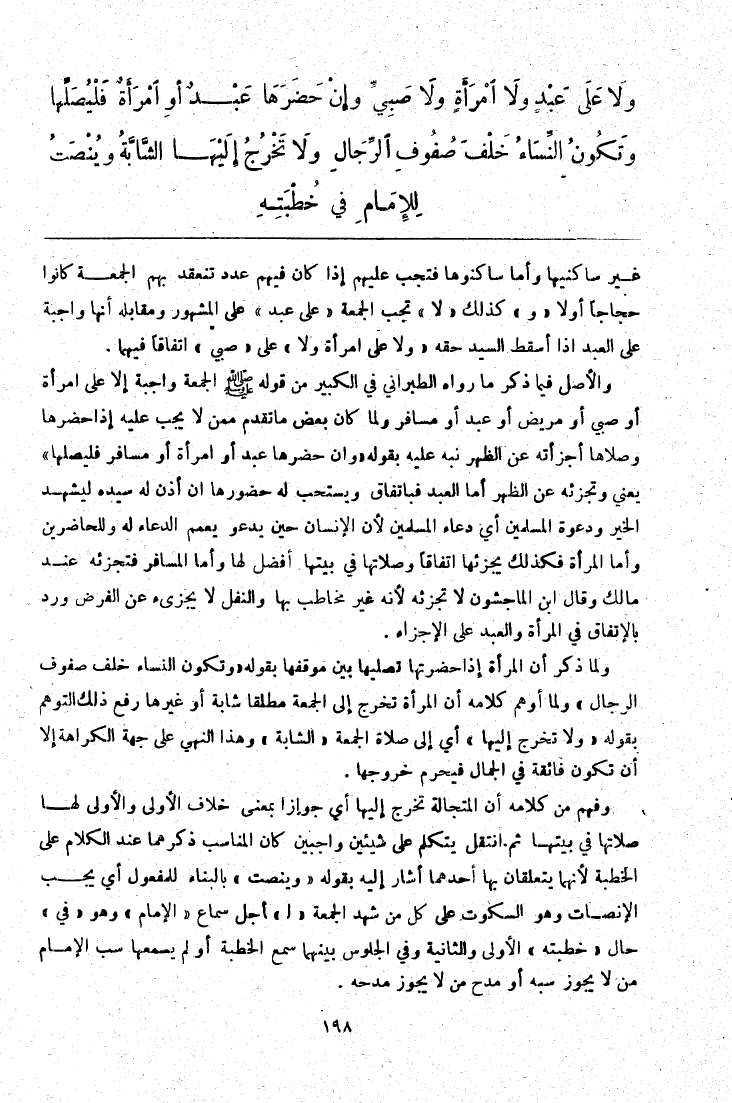 وَلَا عَلَى عَبْدٍ وَلَا ٱمْرَأَةٍ وَلَا صَبِيٍّ وإِنْ حَضَرَهَا عَبْـــدٌ أَو ٱمْرَأَةٌ فَلْيُصَلِّهَا
وَتَكُونُ النِّسَاءُ خَلْفَ صُفُوفِ ٱلرِّجَالِ وَلَا تَخْرُجُ إِلَيْهَـــا الشَّابَّةُ وَيُنْصَتُ
لِلإِمَـامِ فِي خُطْبَتِهِ
غـير ساكنيها وأما ساكنوها فتجب عليهم إذا كان فيهم عدد تنعقد بهم الجمعـــة كانوا
حجاجاً أولا « و » كذلك « لا » تجب الجمعة « على عبد » على المشهور ومقابله أنها واجبة
على العبد اذا أسقط السيد حقه « ولا على امرأة ولا » على « صبي » اتفاقاً فيهما .
والأصل فيما ذكر ما رواه الطبراني في الكبير من قوله ﷺ الجمعة واجبة إلا على امرأة
أو صبي أو مريض أو عبد أو مسافر ولما كان بعض ماتقدم ممن لا يجب عليه إذاحضرها
وصلاها أجزأته عن الظهر نبه عليه بقوله«وان حضرها عبد أو امرأة أو مسافر فليصلها»
يعني وتجزئه عن الظهر أما العبد فباتفاق ويستحب له حضورها ان أذن له سيده ليشهـد
الخير ودعوة المسلمين أي دعاء المسلمين لأن الإنسان حين يدعو يعمم الدعاء له وللحاضرين
وأما المرأة فكذلك يجزئها اتفاقاً وصلاتها في بيتها أفضل لها وأما المسافر فتجزئه عنـــد
مالك وقال ابن الماجشون لا تجزئه لأنه غير مخاطب بها والنفل لا يجزىء عن الفرض ورد
بالإتفاق في المرأة والعبد على الإجزاء .
ولما ذكر أن المرأة إذاحضرتها تصليها بين موقفها بقوله«وتكون النساء خلف صفوف
الرجال » ولما أوهم كلامه أن المرأة تخرج إلى الجمعة مطلقا شابة أو غيرها رفع ذلك التوهم
بقوله « ولا تخرج إليها » أي إلى صلاة الجمعة « الشابة » وهذا النهي على جهة الكراهة إلا
أن تكون فائقة في الجمال فيحرم خروجها .
وفهم من كلامه أن المتجالة تخرج إليها أي جوازا بمعنى خلاف الأولى والأولى لهـــا
صلاتها في بيتهــا ثم.انتقل يتكلم على شيئين واجبين كان المناسب ذكرهما عند الكلام على
الخطبة لأنهما يتعلقان بها أحدهما أشار إليه بقوله « وينصت » بالبناء للمفعول أي يجـــب
الإنصــات وهو السكوت على كل من شهد الجمعة « ا » أجل سماع « الإمام » وهو « في »
حال « خطبته » الأولى والثانية وفي الجلوس بينهما سمع الخطبة أو لم يسمعها سب الإمــام
من لا يجوز سبه أو مدح من لا يجوز مدحه .
١٩٨